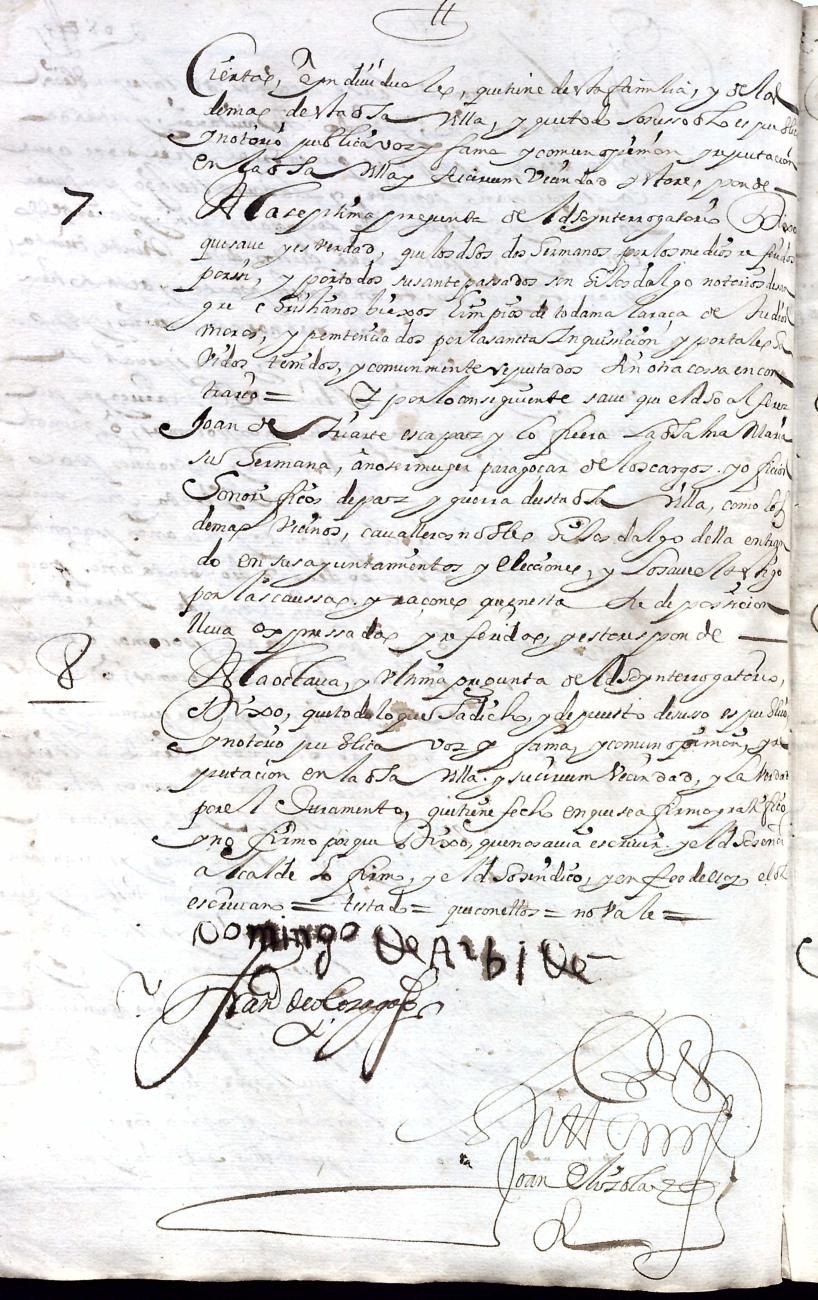 ciertas, e yndiuiduales, que tiene desta familia, y de las
demas desta dha Villa, y que todo lo susso dho es publico
y notorio publica voz y fama y comun opinion y reputacion
en la dha Villa y su circum Vecindad y esto responde —
7. A la septima pregunta del dho ynterrogatorio Dixo
que saue y es verdad, que los dhos dos hermanos por los medios referidos
por si, y por todos sus antepassados son hijos dalgo notorios de san
gre christianos viexos limpios de toda mala raça de Judios
moros, y penitenciados por la sancta Inquisicion y por tales ha
uidos tenidos, y comunmente reputados sin otra cossa en con
trario = Y por lo consiguiente saue que el dho alferez
Joan de Yriarte es capaz y lo fuera la dha Maria
su hermana, a no ser muger para goçar de los cargos. y officios
honorificos de paz y guerra desta dha Villa, como los
demas Vecinos, caualleros nobles hijos dalgo della entran
do en sus ayuntamientos y elecciones, y lo saue el testigo
por las caussas. y raçones que en esta su deposicion
lleua expressadas y referidas, y esto responde —
8. A la octaua, y Vltima pregunta del dho ynterrogatorio,
Dixo, que todo lo que ha dicho, y depuesto de suso es publico,
y notorio publica voz y fama, y comun opinion, y re
putacion en la dha Villa. y su circum Vecindad, y la Verdad
por el Juramento, que tiene fecho en que se afirmo y ratifico
y no firmo porque Dixo, que no sauia escriuir. y el dho señor
alcalde lo firmo, y el dho sindico, y en fee de ello yo el dho
escriuano = testado = que con ellos = no Vale =
Domingo De Arbide
Fran.co de
Ante mi
Joan de